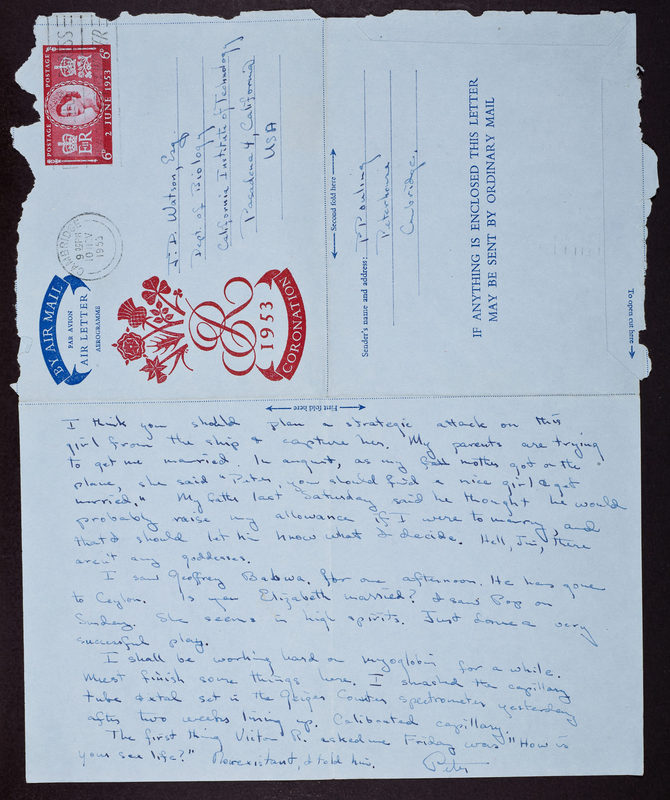 POSTAGE POSTAGE
6D 2 JUNE 1953 6D
E R
CAMBRIDGE
9
10 NOV
1953
BY AIR MAIL
PAR AVION
AIR LETTER
AEROGRAMME
ER
1953
CORONATION
J. D. Watson, Esq.
Dept. of Biology
California Institute of Technology
Pasadena 4, California
USA
Second fold here
Sender's name and address: P Pauling
Peterhouse
Cambridge.
IF ANYTHING IS ENCLOSED THIS LETTER
MAY BE SENT BY ORDINARY MAIL
To open cut here
First fold here
I think you should plan a strategic attack on this
girl from the ship & capture her. My parents are trying
to get me married. In august, as my mother got on the
plane, she said "Peter, you should find a nice girl & get
married." My father last Saturday said he thought he would
probably raise my allowance if I were to marry, and
that I should let him know what I decide. Hell, Jim, there
aren't any goddesses.
I saw Geoffrey Bawa. for one afternoon. He has gone
to Ceylon. Is your Elizabeth married? I saw Pop on
Sunday. She seems in high spirits. Just done a very
successful play.
I shall be working hard on myoglobin for a while.
Must finish some things here. I smashed the capillary
tube xtal set in the Geiger Counter spectrometer yesterday
after two weeks lining up. Calibrated capillary.
The first thing Victor R. asked me Friday was "How is
your sex life?" Nonexistant, I told him.
Peter